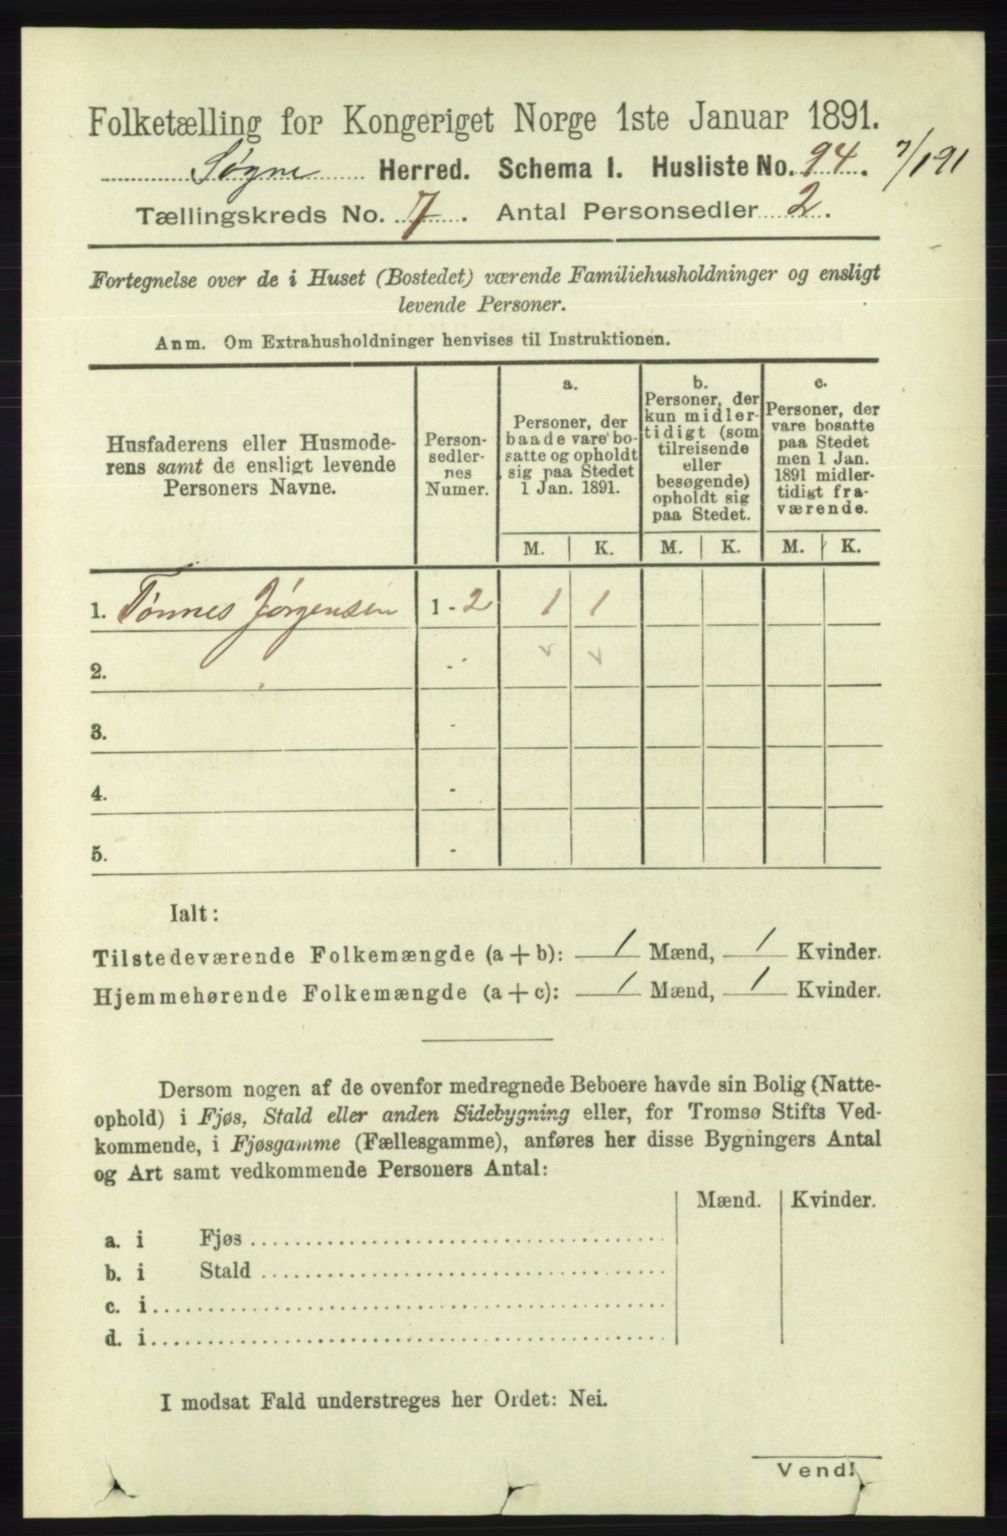 Folketælling for Kongeriget Norge 1ste Januar 1891.
Søgne Herred. Schema I. Husliste No. 94. 7/191
Tællingskreds No. 7. Antal Personsedler 2.
Fortegnelse over de i Huset (Bostedet) værende Familiehusholdninger og ensligt
levende Personer.
Anm. Om Extrahusholdninger henvises til Instruktionen.
Husfaderens eller Husmode-
rens samt de ensligt levende
Personers Navne.
Person-
sedler-
nes
Numer.
a.
Personer, der
baade vare bo-
satte og opholdt
sig paa Stedet
1 Jan. 1891.
b.
Personer, der
kun midler-
tidigt (som
tilreisende
eller
besøgende)
opholdt sig
paa Stedet.
c.
Personer, der
vare bosatte
paa Stedet
men 1 Jan.
1891 midler-
tidigt fra-
værende.
M. K. M. K. M. K.
1. Tønnes Jørgensen 1 - 2 1 1
2. -
3. -
4. -
5. -
Ialt:
Tilstedeværende Folkemængde (a + b): 1 Mænd, 1 Kvinder.
Hjemmehørende Folkemængde (a + c): 1 Mænd, 1 Kvinder.
Dersom nogen af de ovenfor medregnede Beboere havde sin Bolig (Natte-
ophold) i Fjøs, Stald eller anden Sidebygning eller, for Tromsø Stifts Ved-
kommende, i Fjøsgamme (Fællesgamme), anføres her disse Bygningers Antal
og Art samt vedkommende Personers Antal:
Mænd. Kvinder.
a. i Fjøs
b. i Stald
c. i
d. i
I modsat Fald understreges her Ordet: Nei.
Vend!